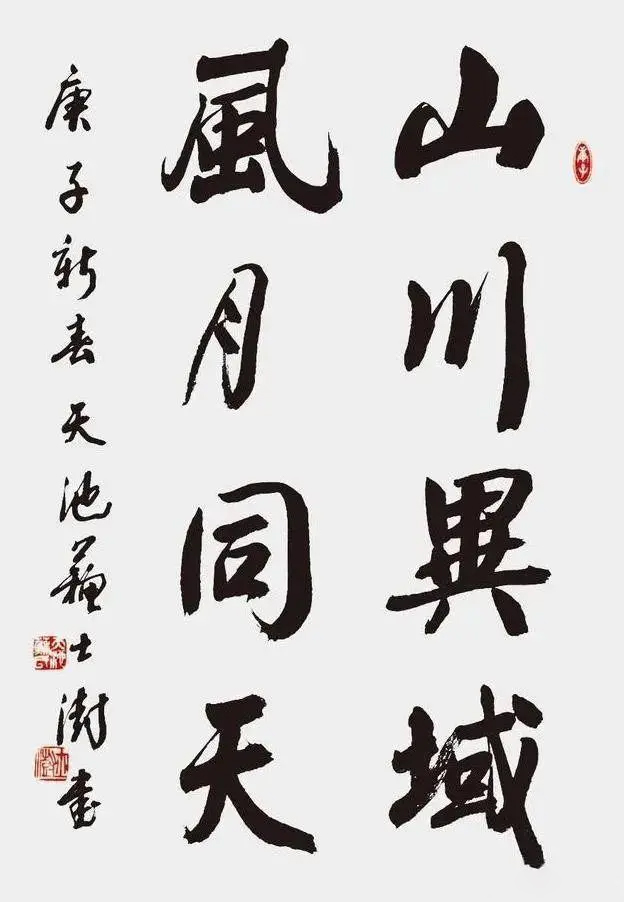 山川異域
風月同天
庚子新春天池蘇士澍書
庚子